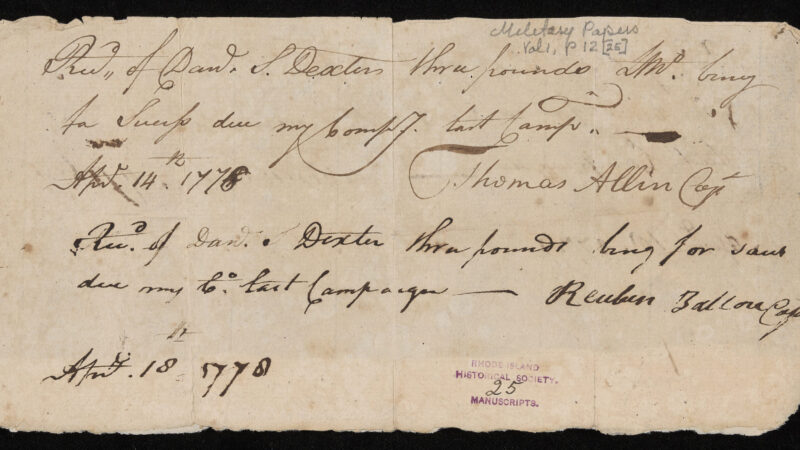 Military Papers
Vol 1, P 12 [25]
Recd. of Dav. S. Dexters three pounds being
to due my Compy. last Camp.n
Aprl. 14th 1778 Thomas Allin Capt
Recd. of Dav. S Dexter three pounds being for
due my Co. last Campaign — Reuben Ballou Capt
Aprl. 18th 1778
RHODE ISLAND
HISTORICAL SOCIETY.
25
MANUSCRIPTS.